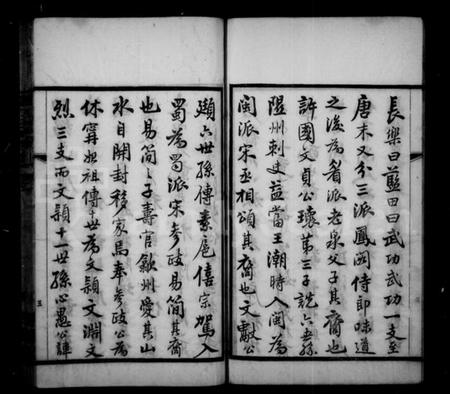 長樂曰藍田曰武功武功一支至
唐末又分三派鳳閣侍郎味道
之後為眉派老泉父子其裔也
許國文貞公瓌第三子說六世孫
隰州刺史益當王潮時入閩為
閩派宋丞相頌其裔也文獻公
頲六世孫傳素扈僖宗駕入
蜀為蜀派宋參政易簡其裔
也易簡之子壽官歙州愛其山
水自開封移家焉奉參政公為
休寧始祖傳十世為文頴文淵文
烈三支而文頴十一世孫心愚公諱
五